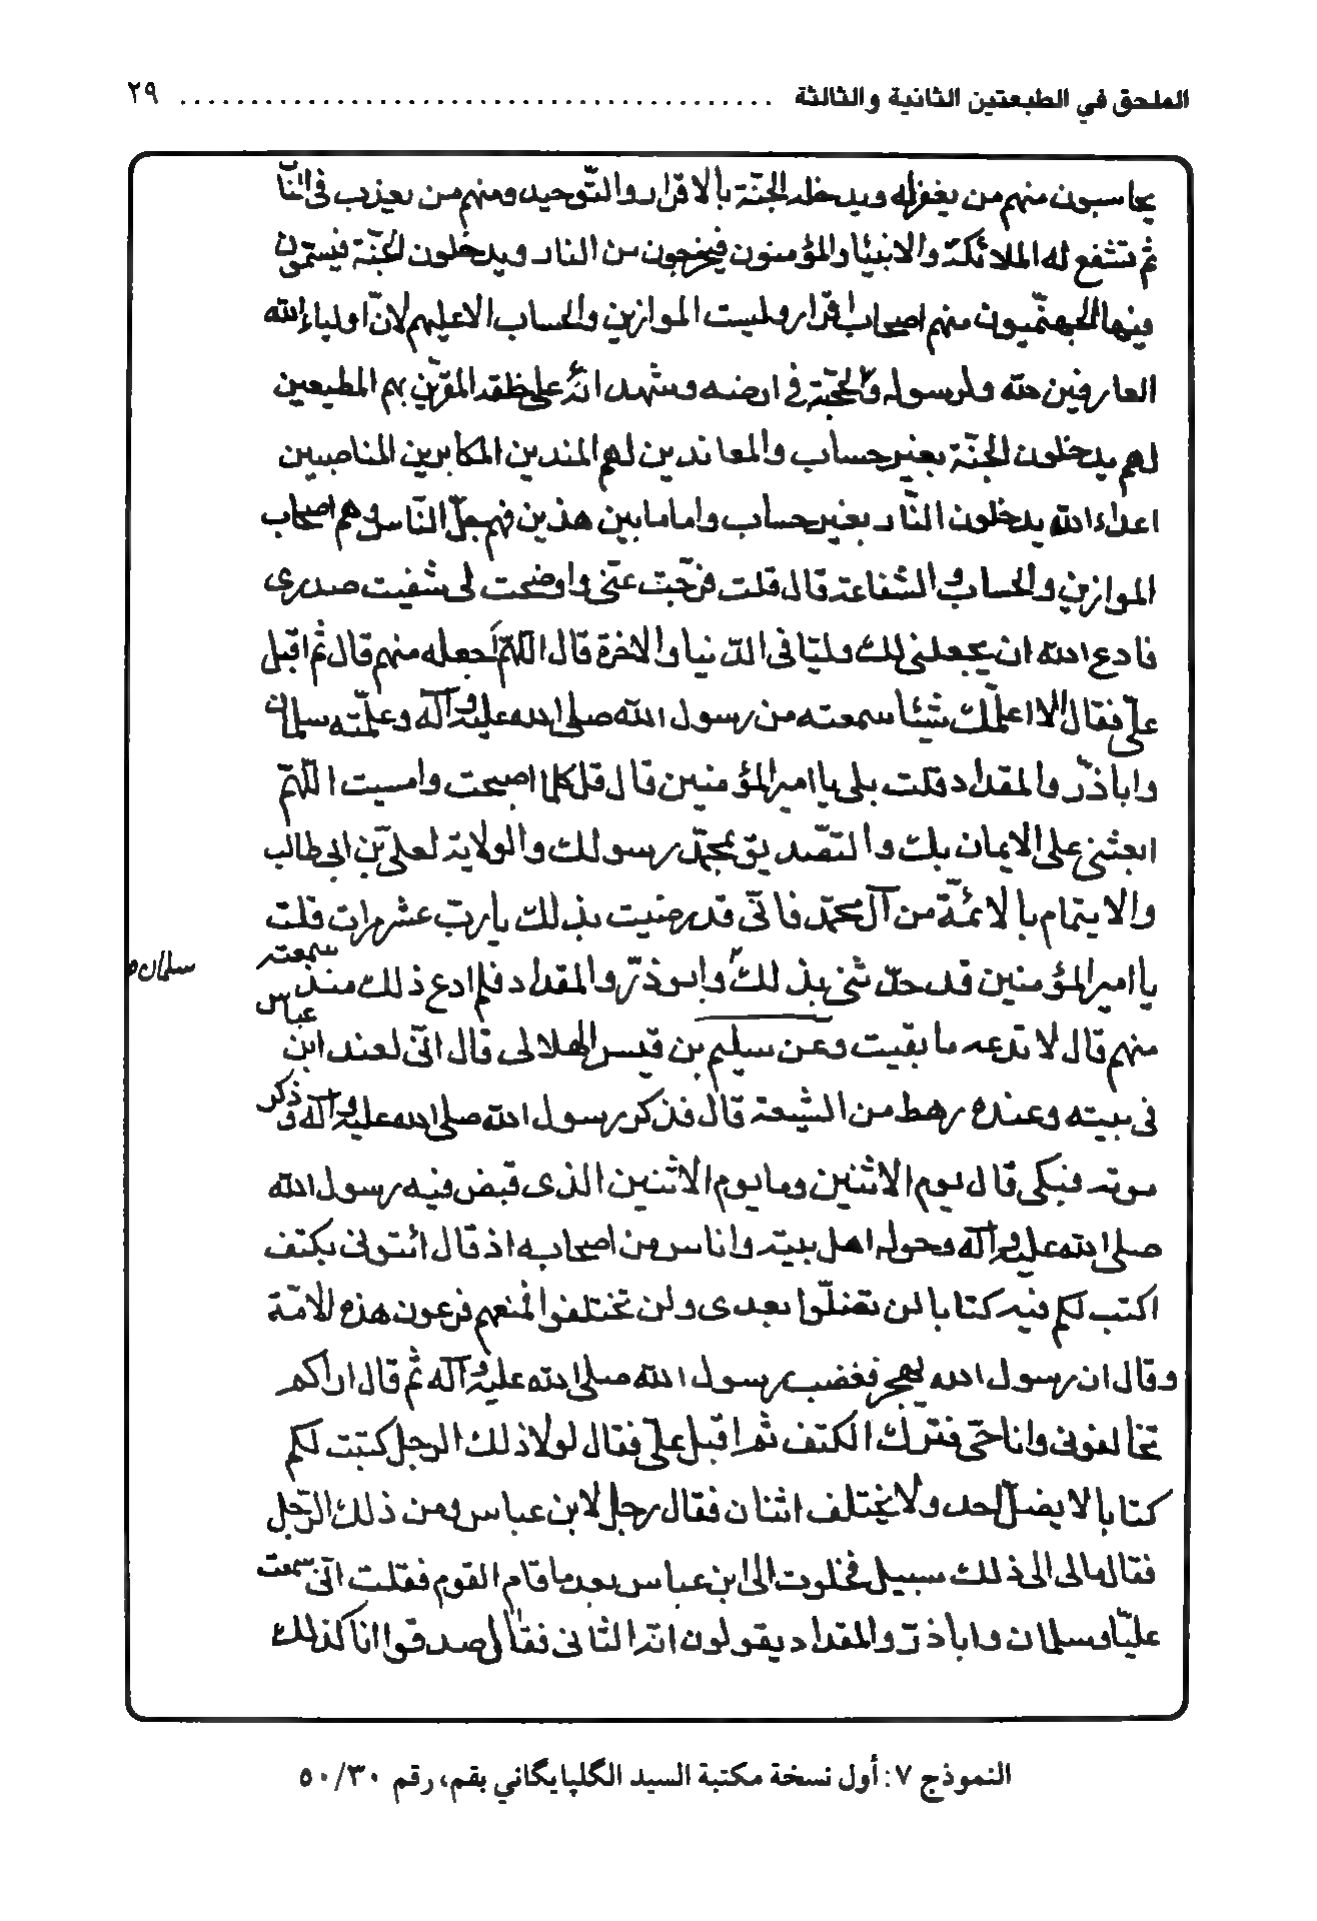 الملحق في الطبعتين الثانية والثالثة ........................................ ٢٩
يحاسبون منهم من يغفر له ويدخله الجنّة بالاقرار والتّوحيد ومنهم من يعذب في النّا
ثم تشفع له الملائكة والانبياء والمؤمنون فيخرجون من النار ويدخلون الجنّة فيسمّون
فيها الجهنّميون منهم اصحاب اقرار وليست الموازين والحساب الا عليهم لانّ اولياء الله
العارفين لله ولرسوله والحجّة في ارضه وشهدائه على خلقه المقرّين بهم المطيعين
لهم يدخلون الجنّة بغير حساب والمعاندين لهم المنذين المكابرين المناصبين
اعداء الله يدخلون النّار بغير حساب واما ما بين هذين فهم جلّ النّاس وهم اصحاب
الموازين والحساب والشفاعة قال قلت فرّجت عنّي واوضحت لى شفيت صدرى
فادع الله ان يجعلنى لك وليّا فى الدّنيا والاخرة قال اللهّم اجعله منهم قال ثم اقبل
علىّ فقال الا اعلّمك شيئا سمعته من رسول الله صلى الله عليه وآله وعلّمته سلمان
واباذرّ والمقداد قلت بلى يا امير المؤمنين قال قل كلما اصبحت وامسيت اللّهمّ
ابعثنى على الايمان بك والتصّديق بمحمّد رسولك والولاية لعلىّ بن ابى طالب
والايتمام بالائمّة من آل محمّد فانّى قد رضيت بذلك يا ربّ عشر مرات قلت
يا امير المؤمنين قد حدّثنى بذلك وابوذرّ والمقداد فلم ادع ذلك منذ سمعته
سلمان
منهم قال لا تدعه ما بقيت وعن سليم بن قيس الهلالى قال انّى لعند ابن عباس
فى بيته وعنده رهط من الشيعة قال فذكر رسول الله صلى الله عليه وآله وذكر
موته فبكى قال يوم الاثنين وما يوم الاثنين الذى قبض فيه رسول الله
صلى الله عليه وآله وحوله اهل بيته واناس من اصحابه اذ قال ائتونى بكتف
اكتب لكم فيه كتابا لن تضلّوا بعدى ولن تختلفوا فمنعهم فرعون هذه الامّة
وقال ان رسول الله يهجر فغضب رسول الله صلى الله عليه وآله ثم قال اراكم
تخالفونى وانا حى فترك الكتف ثم اقبل علىّ فقال لولا ذلك الرجل كتبت لكم
كتابا لا يضلّ احد ولا يختلف اثنان فقال رجل لابن عباس ومن ذلك الرّجل
فقال مالى الى ذلك سبيل فخلوت الى ابن عباس بعد ما قام القوم فقلت انّى سمعت
عليّا وسلمان واباذرّ والمقداد يقولون انّه الثانى فقال صدقوا انا كذلك
النموذج ٧: أول نسخة مكتبة السيد الگلپايگاني بقم، رقم ٥٠/٣٠